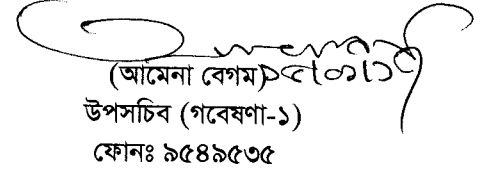 (আমেনা বেগম)
উপসচিব (গবেষণা-১)
ফোনঃ ৯৫৪৯৫৩৫